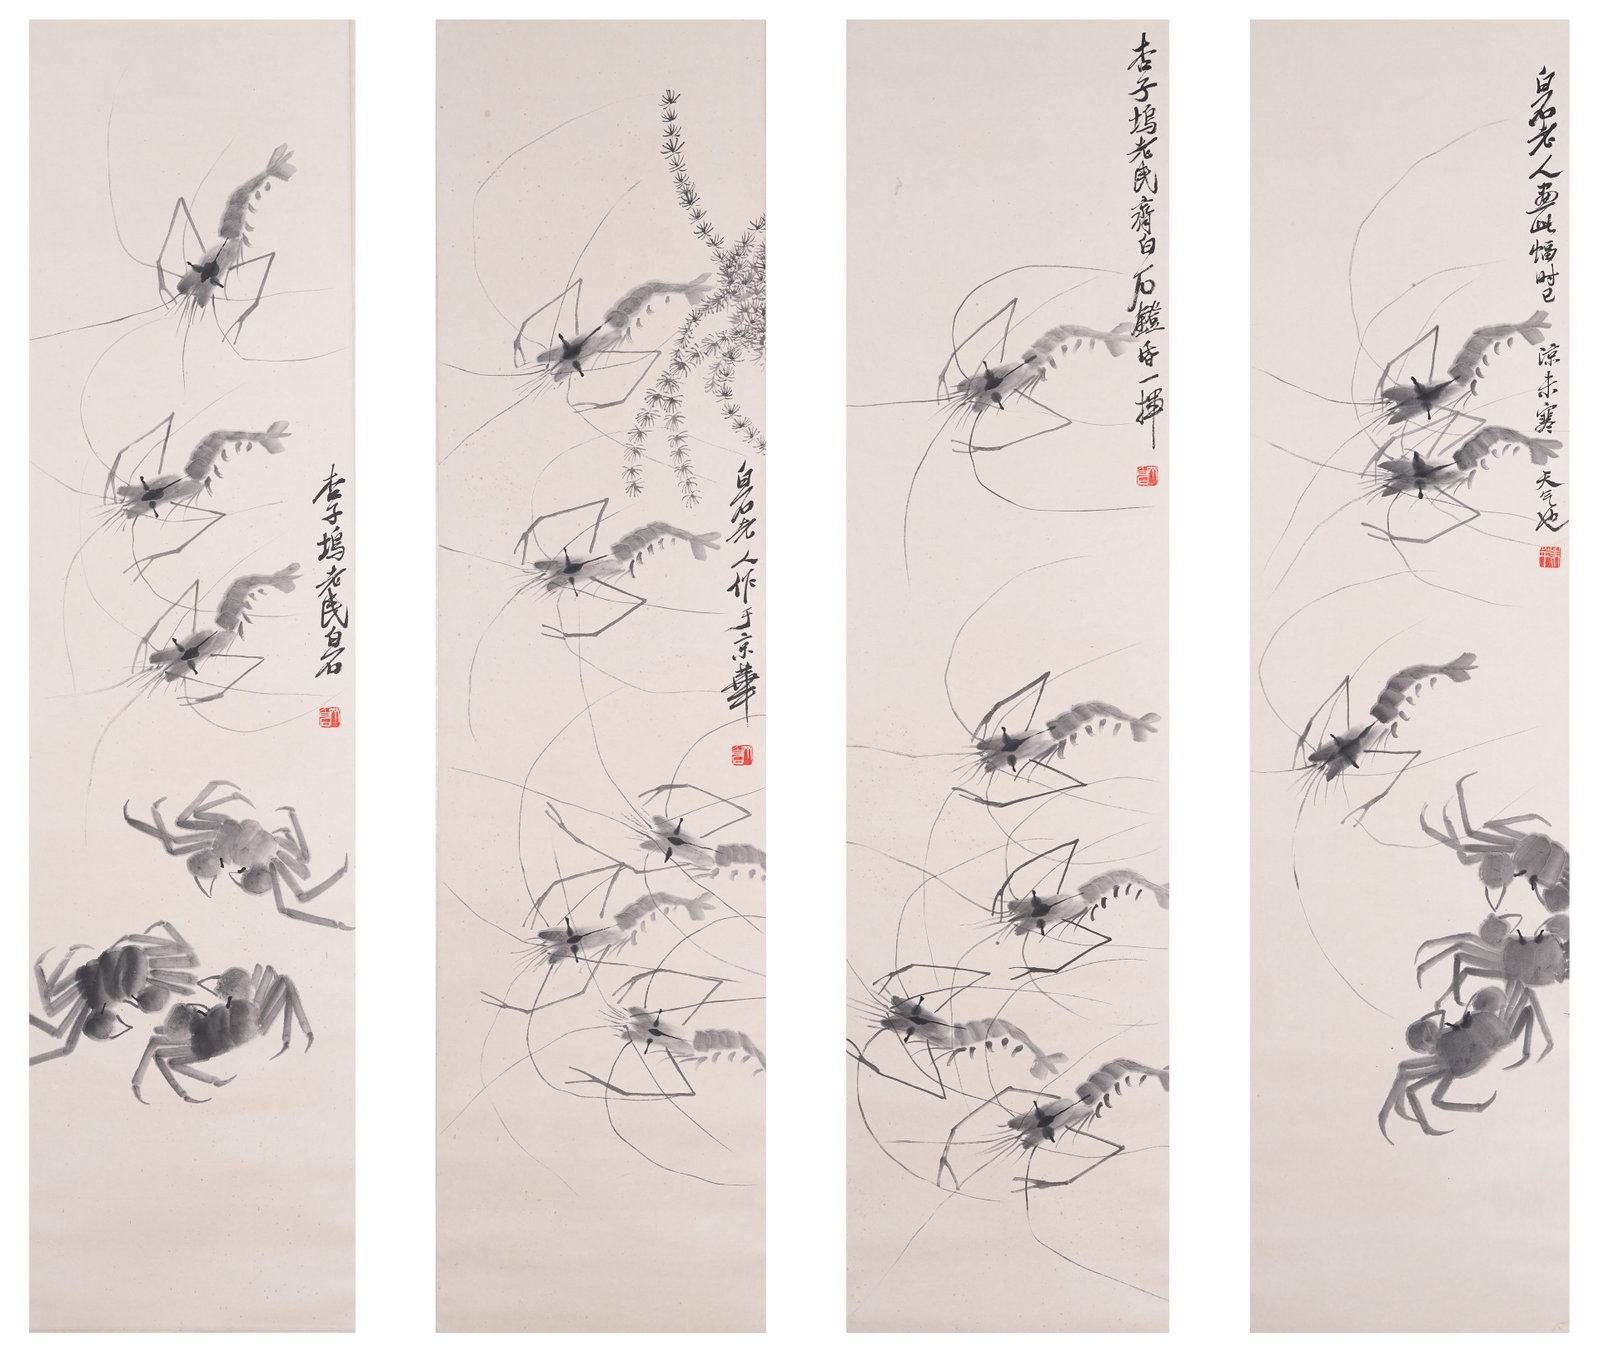 杏子塢老民白石
白石老人作于京華
杏子塢老民齊白石鐙昏一揮
白石老人畫此幅时已
涼未寒
天气也